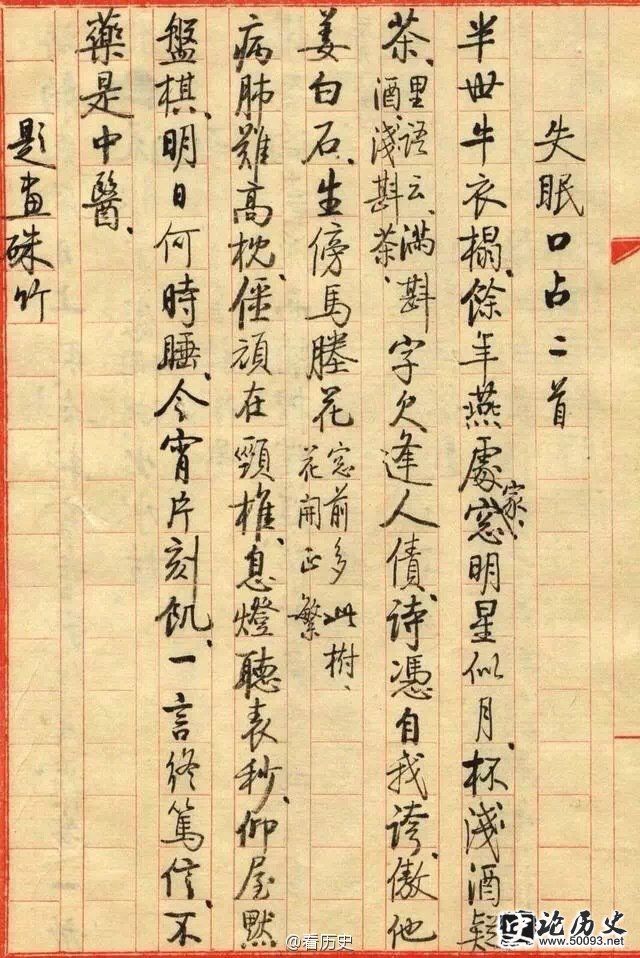 失眠口占二首
半世牛衣榻、餘年燕處家、窓明星似月、杯淺酒疑
茶、里語云、滿斟酒、淺斟茶、字欠逢人債、詩憑自我誇、傲他
姜白石、生傍馬塍花窓前多此樹、花開正繁
病肺難高枕、僵頑在頸椎、息燈聽表秒、仰屋默
盤棋、明日何時睡、今宵片刻飢、一言終篤信、不
藥是中醫、
題畫硃竹
@看历史
论历史
www.50093.net